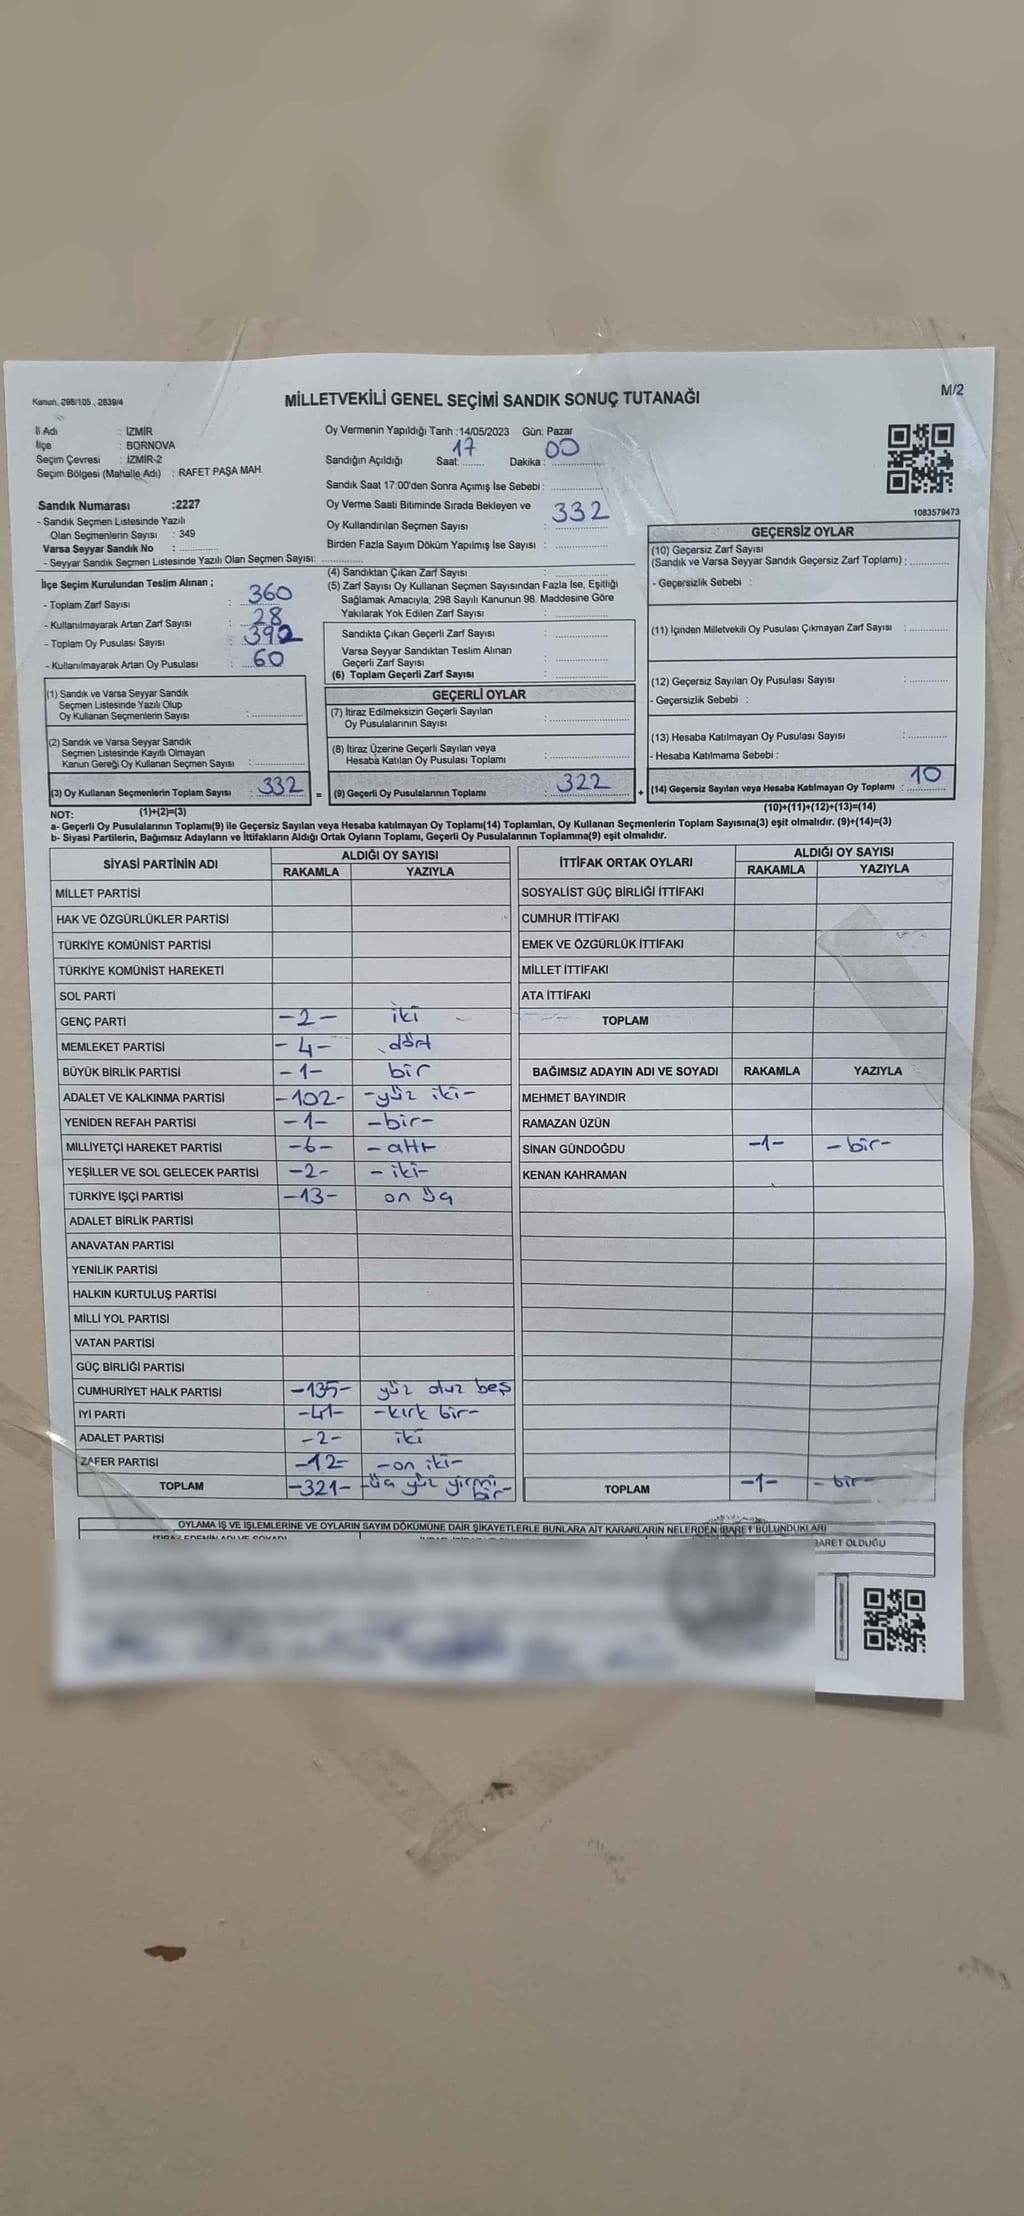 Kanun, 298/105 , 2839/4
MİLLETVEKİLİ GENEL SEÇİMİ SANDIK SONUÇ TUTANAĞI
M/2
İl Adı : İZMİR
İlçe : BORNOVA
Seçim Çevresi : İZMİR-2
Seçim Bölgesi (Mahalle Adı) : RAFET PAŞA MAH.
Oy Vermenin Yapıldığı Tarih : 14/05/2023 Gün: Pazar
Sandığın Açıldığı Saat: 17 Dakika : 00
Sandık Saat 17:00'den Sonra Açımış İse Sebebi :
Oy Verme Saati Bitiminde Sırada Bekleyen ve
Oy Kullandırılan Seçmen Sayısı : 332
Birden Fazla Sayım Döküm Yapılmış İse Sayısı :
1083579473
Sandık Numarası :2227
- Sandık Seçmen Listesinde Yazılı
Olan Seçmenlerin Sayısı : 349
Varsa Seyyar Sandık No :
- Seyyar Sandık Seçmen Listesinde Yazılı Olan Seçmen Sayısı:
İlçe Seçim Kurulundan Teslim Alınan ;
- Toplam Zarf Sayısı : 360
- Kullanılmayarak Artan Zarf Sayısı : 28
- Toplam Oy Pusulası Sayısı : 392
- Kullanılmayarak Artan Oy Pusulası : 60
(1) Sandık ve Varsa Seyyar Sandık
Seçmen Listesinde Yazılı Olup
Oy Kullanan Seçmenlerin Sayısı :
(2) Sandık ve Varsa Seyyar Sandık
Seçmen Listesinde Kayıtlı Olmayan
Kanun Gereği Oy Kullanan Seçmen Sayısı :
(3) Oy Kullanan Seçmenlerin Toplam Sayısı : 332 =
(4) Sandıktan Çıkan Zarf Sayısı :
(5) Zarf Sayısı Oy Kullanan Seçmen Sayısından Fazla İse, Eşitliği
Sağlamak Amacıyla, 298 Sayılı Kanunun 98. Maddesine Göre
Yakılarak Yok Edilen Zarf Sayısı :
Sandıkta Çıkan Geçerli Zarf Sayısı :
Varsa Seyyar Sandıktan Teslim Alınan
Geçerli Zarf Sayısı :
(6) Toplam Geçerli Zarf Sayısı :
GEÇERLİ OYLAR
(7) İtiraz Edilmeksizin Geçerli Sayılan
Oy Pusulalarının Sayısı :
(8) İtiraz Üzerine Geçerli Sayılan veya
Hesaba Katılan Oy Pusulası Toplamı :
(9) Geçerli Oy Pusulalarının Toplamı : 322 +
GEÇERSİZ OYLAR
(10) Geçersiz Zarf Sayısı
(Sandık ve Varsa Seyyar Sandık Geçersiz Zarf Toplamı) :
- Geçersizlik Sebebi :
(11) İçinden Milletvekili Oy Pusulası Çıkmayan Zarf Sayısı :
(12) Geçersiz Sayılan Oy Pusulası Sayısı :
- Geçersizlik Sebebi :
(13) Hesaba Katılmayan Oy Pusulası Sayısı :
- Hesaba Katılmama Sebebi :
(14) Geçersiz Sayılan veya Hesaba Katılmayan Oy Toplamı : 10
NOT: (1)+(2)=(3)
(10)+(11)+(12)+(13)=(14)
a- Geçerli Oy Pusulalarının Toplamı(9) ile Geçersiz Sayılan veya Hesaba katılmayan Oy Toplamı(14) Toplamları, Oy Kullanan Seçmenlerin Toplam Sayısına(3) eşit olmalıdır. (9)+(14)=(3)
b- Siyasi Partilerin, Bağımsız Adayların ve İttifakların Aldığı Ortak Oyların Toplamı, Geçerli Oy Pusulalarının Toplamına(9) eşit olmalıdır.
SİYASİ PARTİNİN ADI ALDIĞI OY SAYISI
RAKAMLA YAZIYLA
MİLLET PARTİSİ
HAK VE ÖZGÜRLÜKLER PARTİSİ
TÜRKİYE KOMÜNİST PARTİSİ
TÜRKİYE KOMÜNİST HAREKETİ
SOL PARTİ
GENÇ PARTİ -2- iki
MEMLEKET PARTİSİ -4- dört
BÜYÜK BİRLİK PARTİSİ -1- bir
ADALET VE KALKINMA PARTİSİ -102- -yüz iki-
YENİDEN REFAH PARTİSİ -1- -bir-
MİLLİYETÇİ HAREKET PARTİSİ -6- -altı
YEŞİLLER VE SOL GELECEK PARTİSİ -2- -iki-
TÜRKİYE İŞÇİ PARTİSİ -13- on üç
ADALET BİRLİK PARTİSİ
ANAVATAN PARTİSİ
YENİLİK PARTİSİ
HALKIN KURTULUŞ PARTİSİ
MİLLİ YOL PARTİSİ
VATAN PARTİSİ
GÜÇ BİRLİĞİ PARTİSİ
CUMHURİYET HALK PARTİSİ -135- yüz otuz beş
İYİ PARTİ -41- -kırk bir-
ADALET PARTİSİ -2- iki
ZAFER PARTİSİ -12- -on iki-
TOPLAM -321- -üç yüz yirmi bir-
İTTİFAK ORTAK OYLARI ALDIĞI OY SAYISI
RAKAMLA YAZIYLA
SOSYALİST GÜÇ BİRLİĞİ İTTİFAKI
CUMHUR İTTİFAKI
EMEK VE ÖZGÜRLÜK İTTİFAKI
MİLLET İTTİFAKI
ATA İTTİFAKI
TOPLAM
BAĞIMSIZ ADAYIN ADI VE SOYADI RAKAMLA YAZIYLA
MEHMET BAYINDIR
RAMAZAN ÜZÜN
SİNAN GÜNDOĞDU -1- -bir-
KENAN KAHRAMAN
TOPLAM -1- -bir-
OYLAMA İŞ VE İŞLEMLERİNE VE OYLARIN SAYIM DÖKÜMÜNE DAİR ŞİKAYETLERLE BUNLARA AİT KARARLARIN NELERDEN İBARET BULUNDUKLARI
BARET OLDUĞU